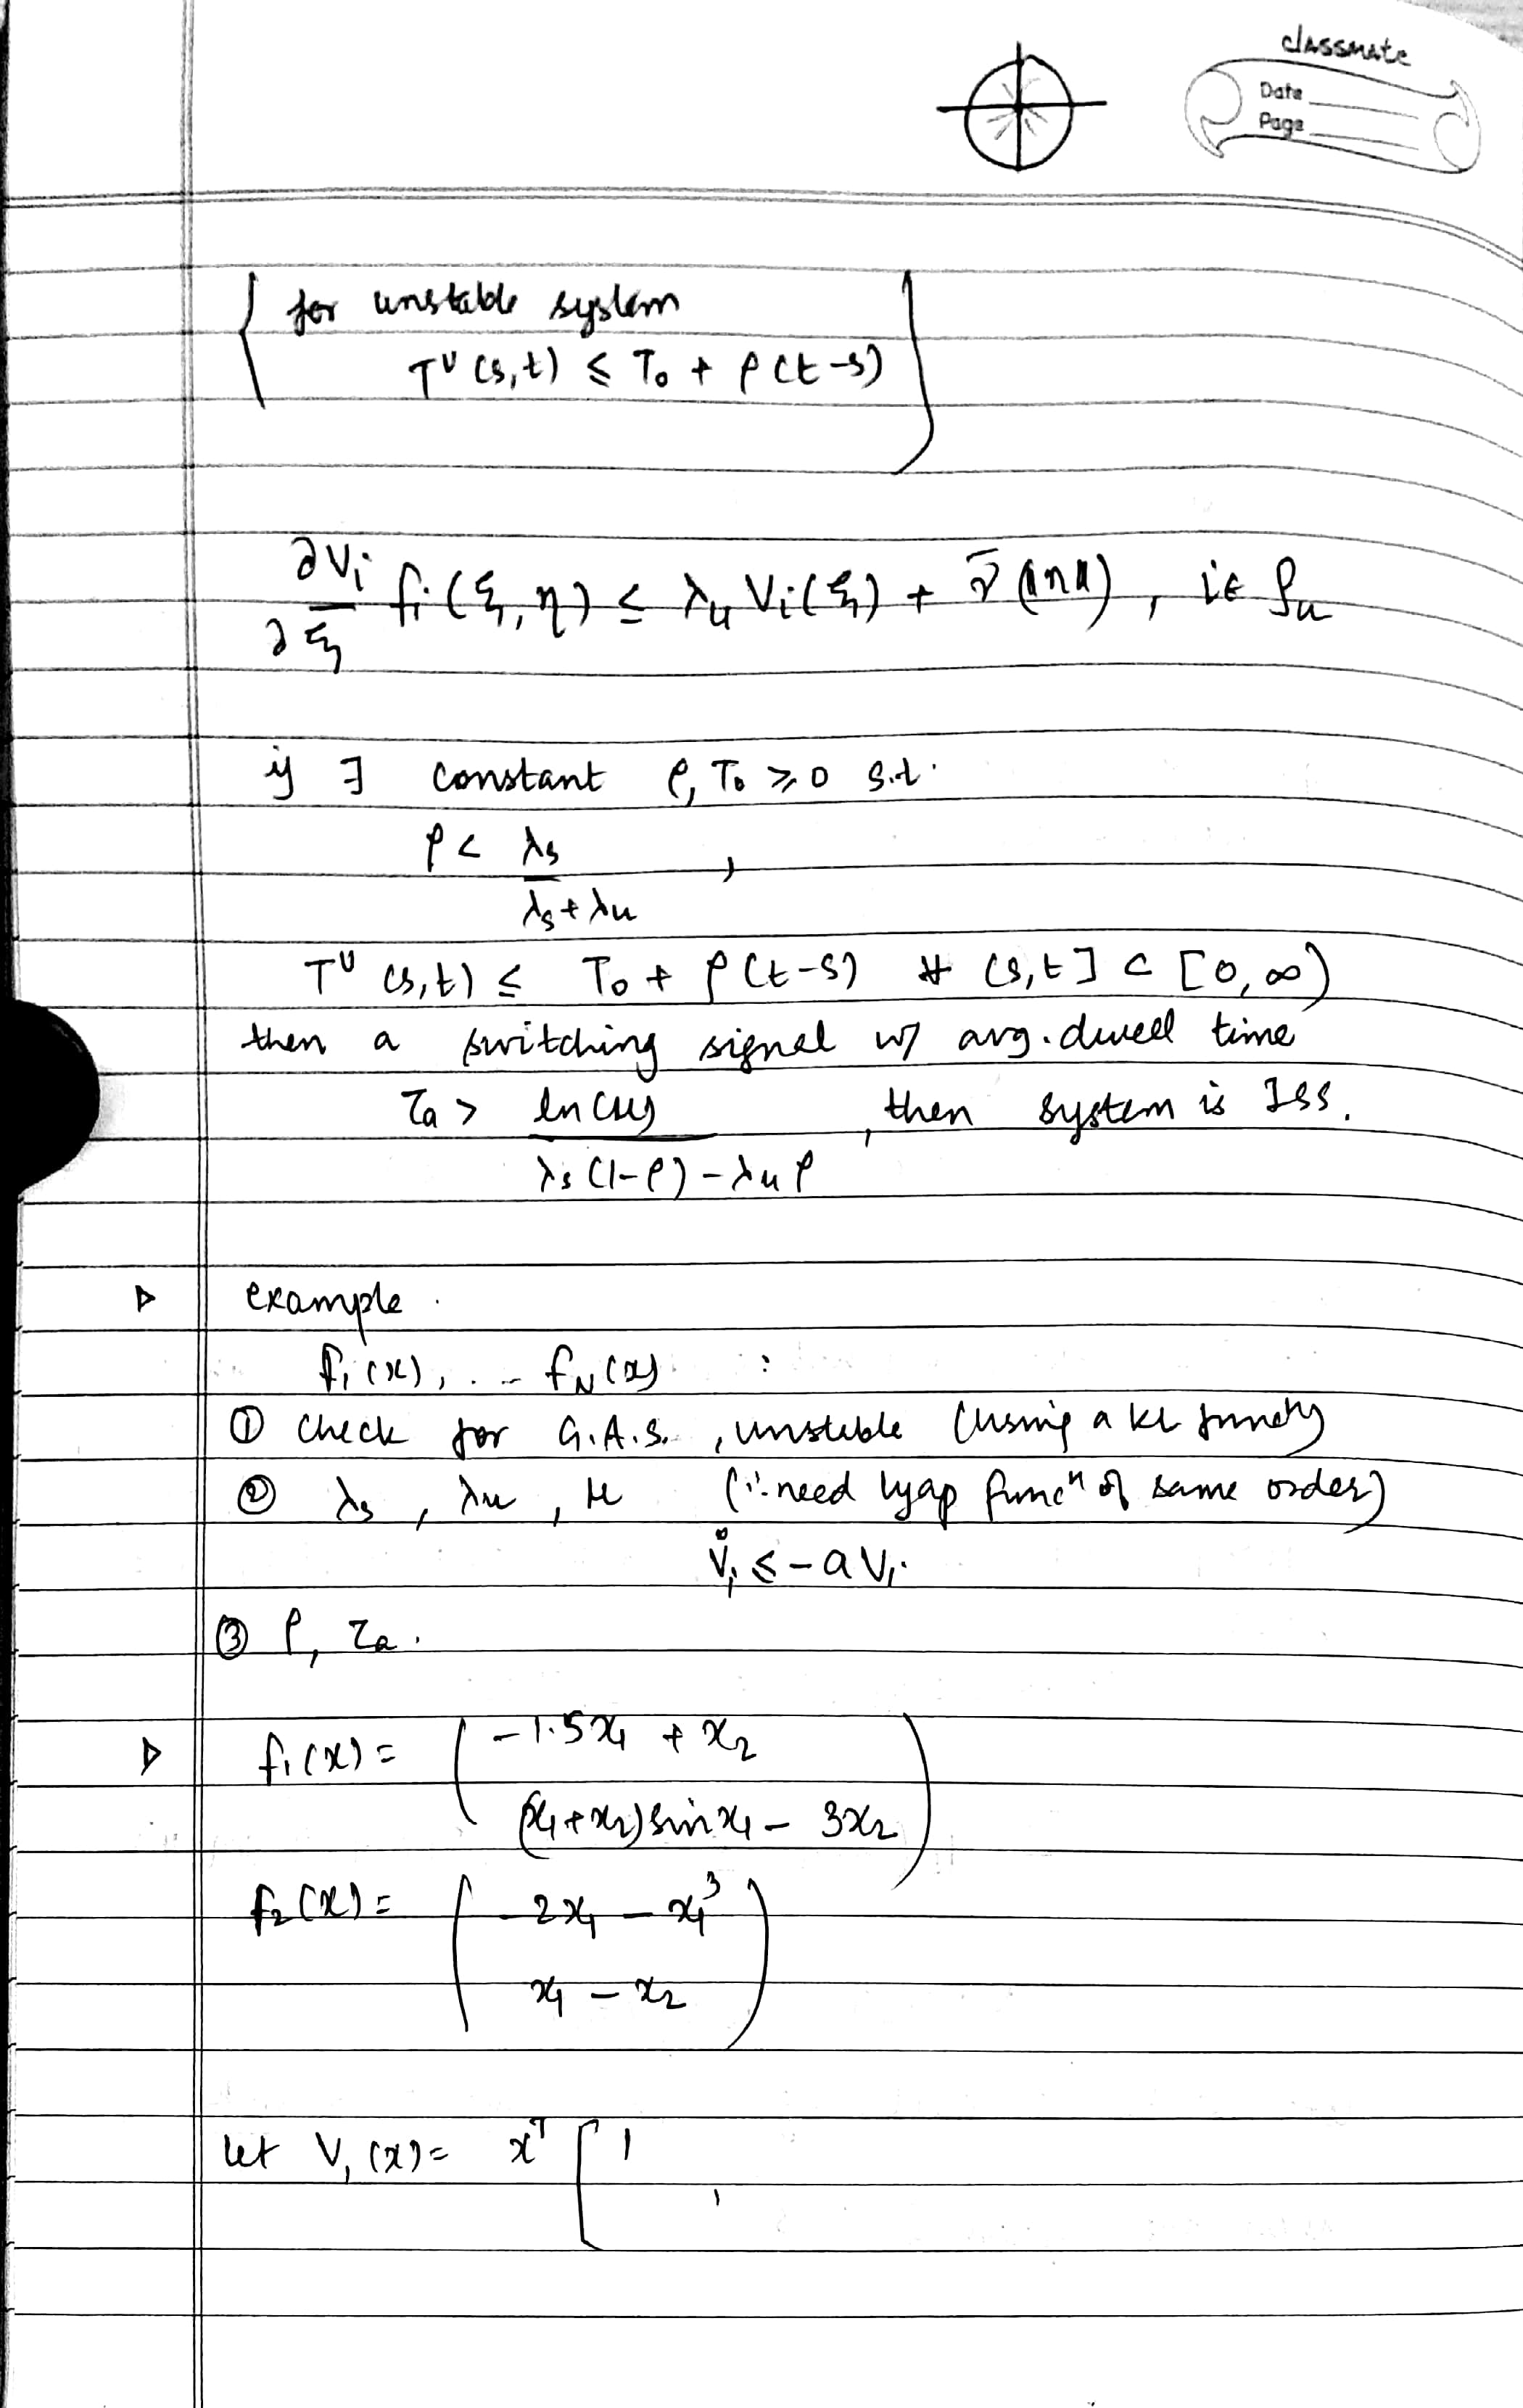 classmate
Date
Page
for unstable system
T^U (s,t) ≤ T₀ + ρ(t-s)
∂Vᵢ/∂ξ fᵢ(ξ,η) ≤ λᵤ Vᵢ(ξ) + γ̄(‖η‖), i ∈ 𝒫ᵤ
if ∃ constant ρ, T₀ ≥ 0 s.t.
ρ < λₛ/(λₛ+λᵤ),
T^U (s,t) ≤ T₀ + ρ(t-s) ∀ (s,t] ⊂ [0,∞)
then a switching signal w/ avg. dwell time
τₐ > ln(μ)/(λₛ(1-ρ) - λᵤρ), then system is ISS.
example.
f₁(x), ... f_N(x) :
① Check for G.A.S., unstable (using a KL funcⁿ)
② λₛ, λᵤ, μ (∵ need lyap funcⁿ of same order)
V̇ᵢ ≤ -aVᵢ
③ ρ, τₐ.
f₁(x) = ( -1.5x₁ + x₂
(x₁+x₂)sinx₁ - 3x₂ )
f₂(x) = ( -2x₁ - x₁³
x₁ - x₂ )
let V₁(x) = xᵀ [ 1
1